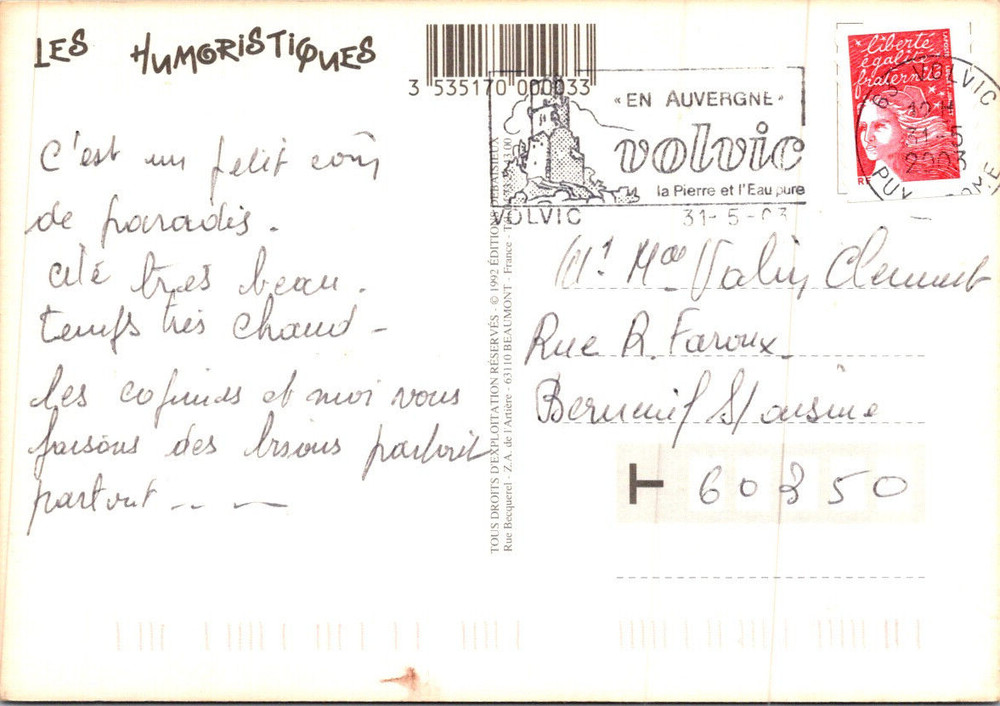 LES HUMORISTIQUES
3 535170 000033
C'est un petit coin
de paradis.
été très beau.
temps très chaud -
les copines et moi vous
faisons des bisous partout
partout -- —
TOUS DROITS D'EXPLOITATION RÉSERVÉS - © 1992 ÉDITION
Rue Becquerel - Z.A. de l'Artière - 63110 BEAUMONT - France - 
« EN AUVERGNE »
volvic
la Pierre et l'Eau pure
VOLVIC 31-5-03
liberté
égalité
fraternité
RF
63 VOLVIC
12 H
31-5
2003
PUY DOME
Mr Mme Clement
Rue R. Faroux
Berneuil S/ Aisne
60350